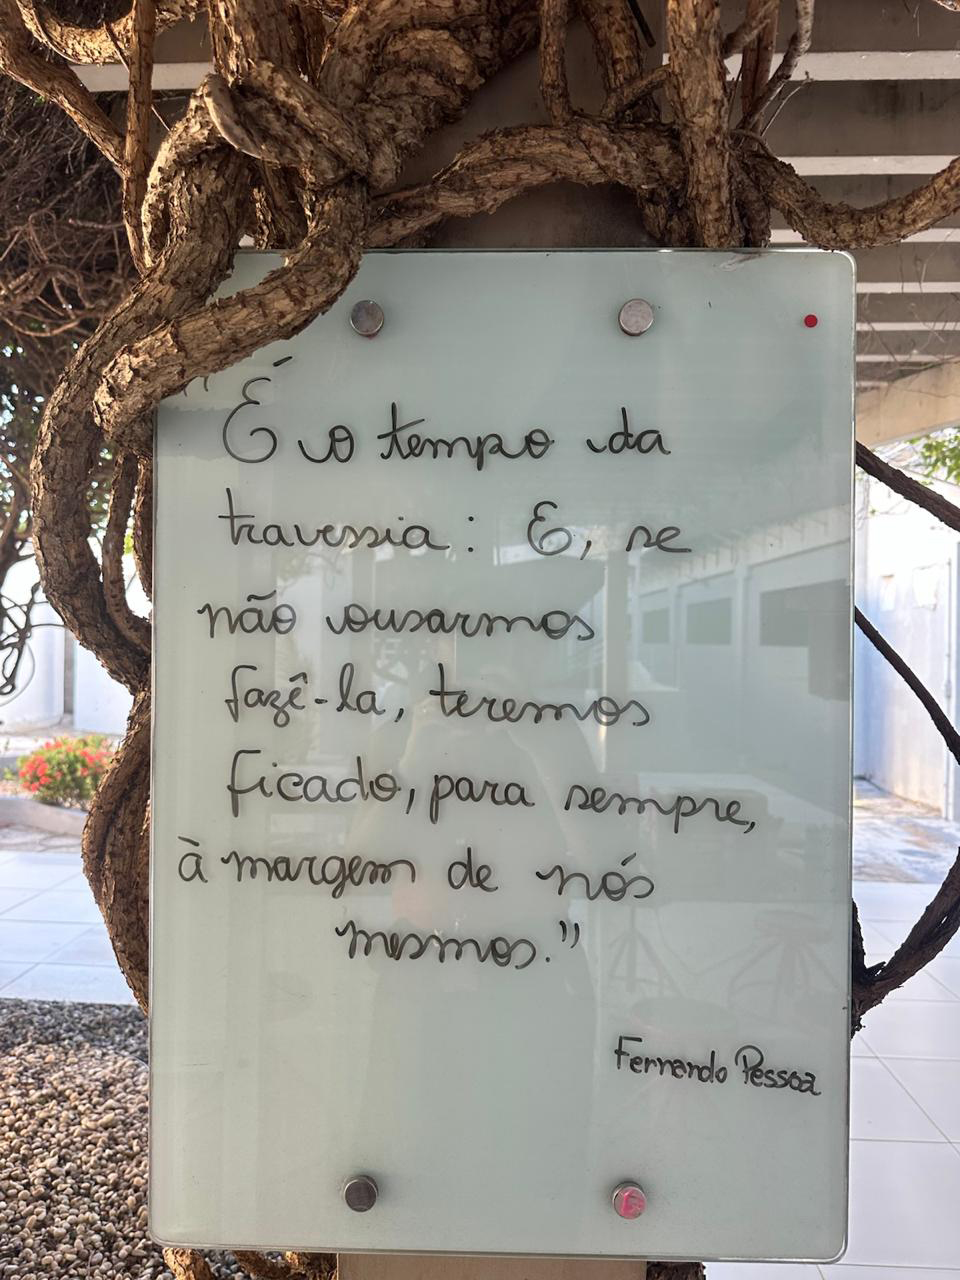 "É o tempo da
travessia: E, se
não ousarmos
fazê-la, teremos
ficado, para sempre,
à margem de nós
mesmos."
Fernando Pessoa